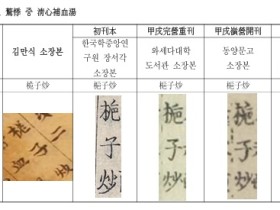 驚悸 중 淸心補血湯
김만식 소장본
初刊本
한국학중앙연
구원 장서각
소장본
甲戌完營重刊
와세다대학
도서관 소장본
甲戌嶺營開刊
동양문고
소장본
梔子炒
梔子炒
梔子炒
梔子炒
梔子炒
梔子炒
梔子炒